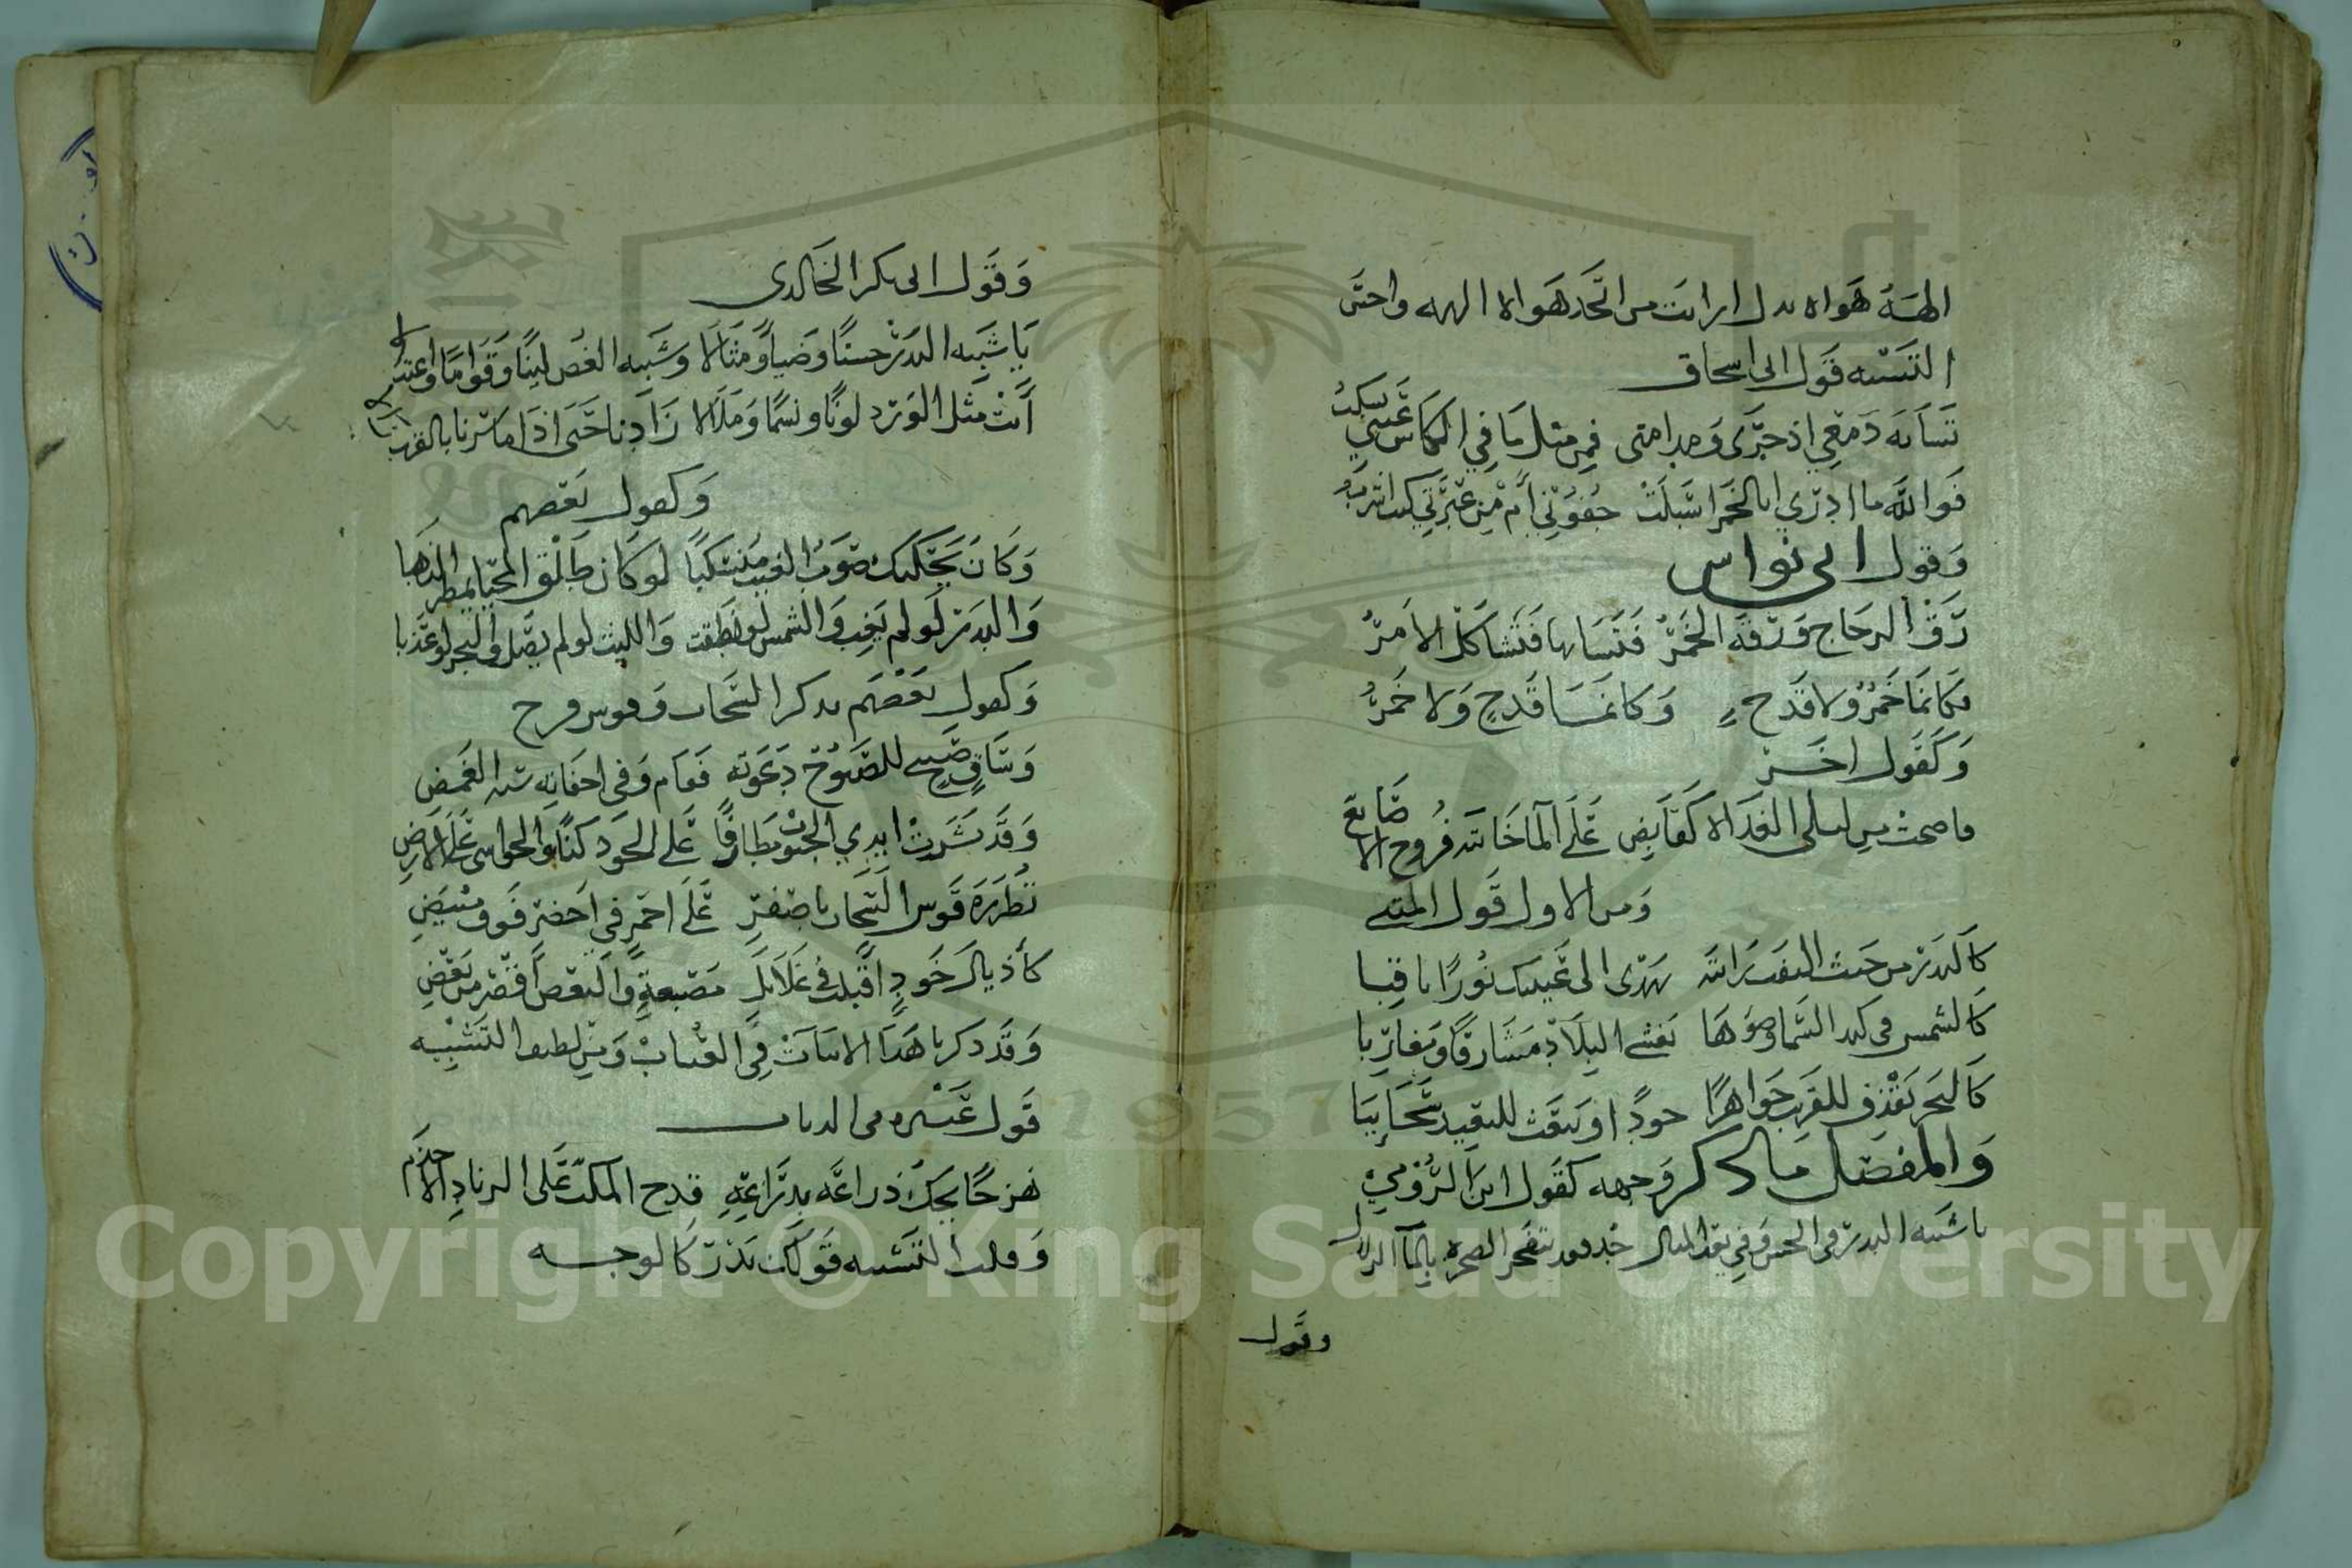 الهه هواه بدل ارايت من اتخذ هواه الاالهه واحسن
التشبيه قول ابى اسحاق
تشابه دمعي اذ جرى ومدامتى فمن مثل ما في الكاس عيني تسكب
فوالله ما ادري ابالخمر اسبلت جفوني أم من عبرتي كنت اشرب
وقول ابى نواس
رق الزجاج ورقة الخمر فتشابها فتشاكل الامر
فكانما خمر ولا قدح وكانما قدح ولا خمر
وكقول اخر
فاصحت من ليلى الغداة كقابض على الما خانته فروج الاصابع
ومن الاول قول المتنبى
كالبدر من حيث التفت رايته يهدى الى عينيك نورا ثاقبا
كالشمس في كبد السما وضوها يغشى البلاد مشارقا ومغاربا
كالبحر يقذف للقريب جواهرا جودا ويبعث للبعيد سحايبا
والمفصل ما ذكر وجهه كقول ابن الرومي
يا شبيه البدر فى الحسن وفي بعد المنال جد فقد تنفجر الصخرة بالمآ الزلال
وقول
وقول ابى بكر الخالدى
يا شبيه البدر حسنا وضيا ومثالا وشبيه الغصن لينا وقواما واعتدالا
أنت مثل الورد لونا ونسما وملالا زادنا حتى اذا ما سرنا بالقرب زالا
وكقول بعضهم
وكان يحكيك صوب الغيث منسكبا لو كان طلق المحيا يمطر الذهبا
والبدر لو لم يغب والشمس لو نطقت والليث لو لم يصل والبحر لو عذبا
وكقول بعضهم يذكر السحاب وقوس قزح
وساق صبيح للصبوح دعوته فقام وفى اجفانه سنة الغمض
وقد نشرت ايدي الجنوب مطارفا على الجود كنا والحواشى على الارض
تطرزه قوس السحاب باصفر على احمر في اخضر فوق مبيض
كأذيال خود اقبلت في غلايل مصبغة والبعض اقصر من بعض
وقد ذكرنا هذا الابيات في العتاب ومن لطيف التشبيه
قول عنتره فى الذباب
هزجا يحك ذراعه بذراعه قدح المكب على الزناد الاجذم
وقلب التشبيه قولك بدر كالوجه
Copyright © King Saud University
1957